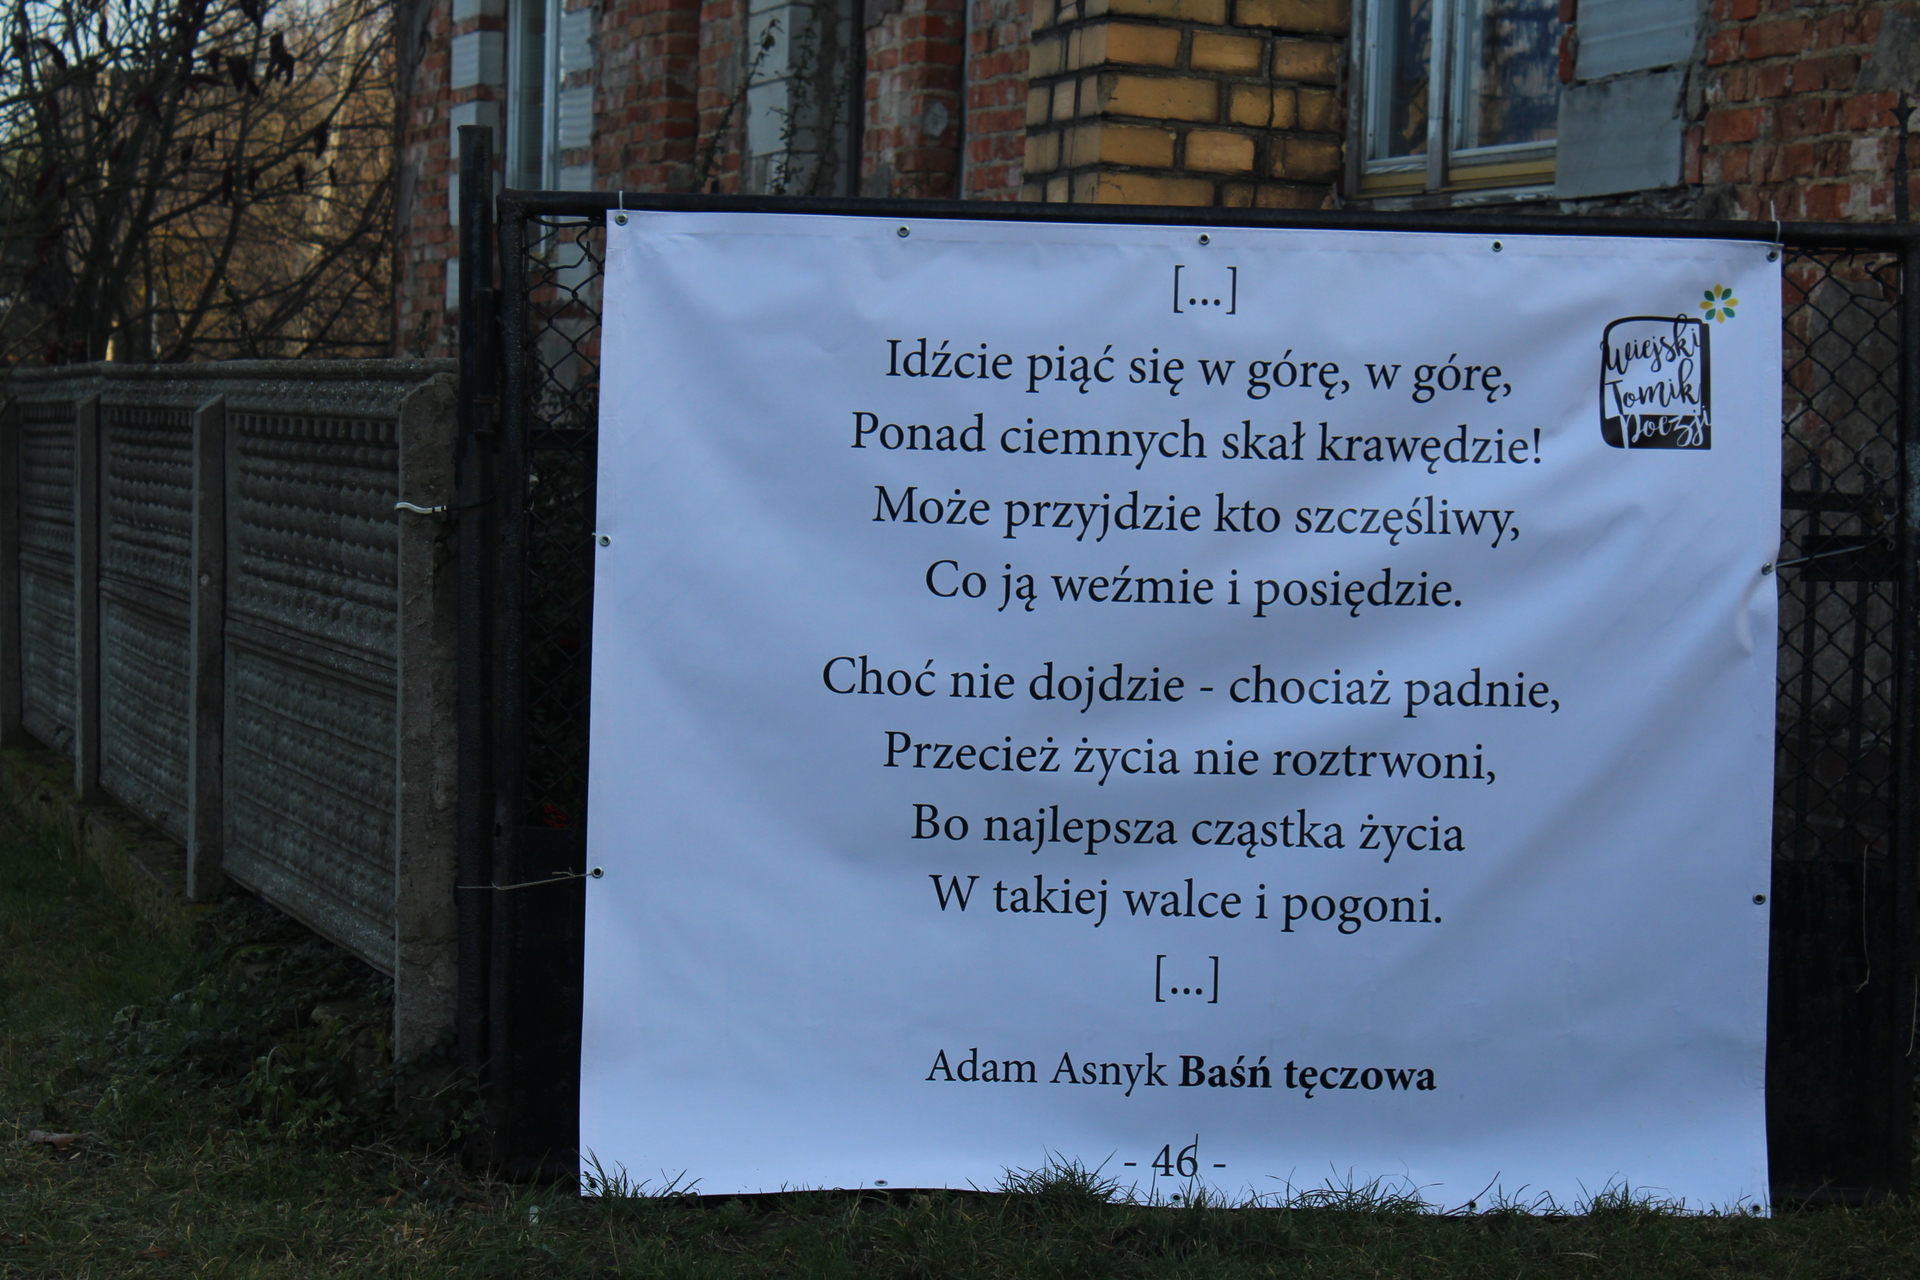 [...]
Idźcie piąć się w górę, w górę,
Ponad ciemnych skał krawędzie!
Może przyjdzie kto szczęśliwy,
Co ją weźmie i posiędzie.
Choć nie dojdzie - chociaż padnie,
Przecież życia nie roztrwoni,
Bo najlepsza cząstka życia
W takiej walce i pogoni.
[...]
Adam Asnyk Baśń tęczowa
- 46 -
Wiejski
Tomik
Poezji